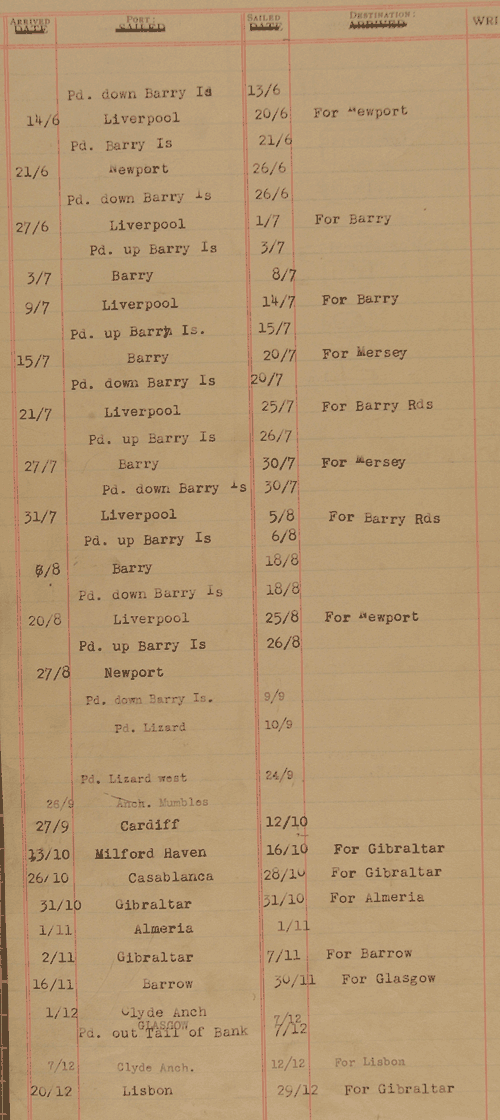 ARRIVED DATE PORT: SAILED SAILED DATE DESTINATION: ARRIVED WRI
Pd. down Barry Is 13/6
14/6 Liverpool 20/6 For Newport
Pd. Barry Is 21/6
21/6 Newport 26/6
Pd. down Barry Is 26/6
27/6 Liverpool 1/7 For Barry
Pd. up Barry Is 3/7
3/7 Barry 8/7
9/7 Liverpool 14/7 For Barry
Pd. up Barry Is. 15/7
15/7 Barry 20/7 For Mersey
Pd. down Barry Is 20/7
21/7 Liverpool 25/7 For Barry Rds
Pd. up Barry Is 26/7
27/7 Barry 30/7 For Mersey
Pd. down Barry Is 30/7
31/7 Liverpool 5/8 For Barry Rds
Pd. up Barry Is 6/8
6/8 Barry 18/8
Pd. down Barry Is 18/8
20/8 Liverpool 25/8 For Newport
Pd. up Barry Is 26/8
27/8 Newport
Pd. down Barry Is. 9/9
Pd. Lizard 10/9
Pd. Lizard west 24/9
26/9 Anch. Mumbles
27/9 Cardiff 12/10
13/10 Milford Haven 16/10 For Gibraltar
26/10 Casablanca 28/10 For Gibraltar
31/10 Gibraltar 31/10 For Almeria
1/11 Almeria 1/11
2/11 Gibraltar 7/11 For Barrow
16/11 Barrow 30/11 For Glasgow
1/12 Clyde Anch
GLASGOW 7/12
Pd. out Tail of Bank 7/12
7/12 Clyde Anch. 12/12 For Lisbon
20/12 Lisbon 29/12 For Gibraltar